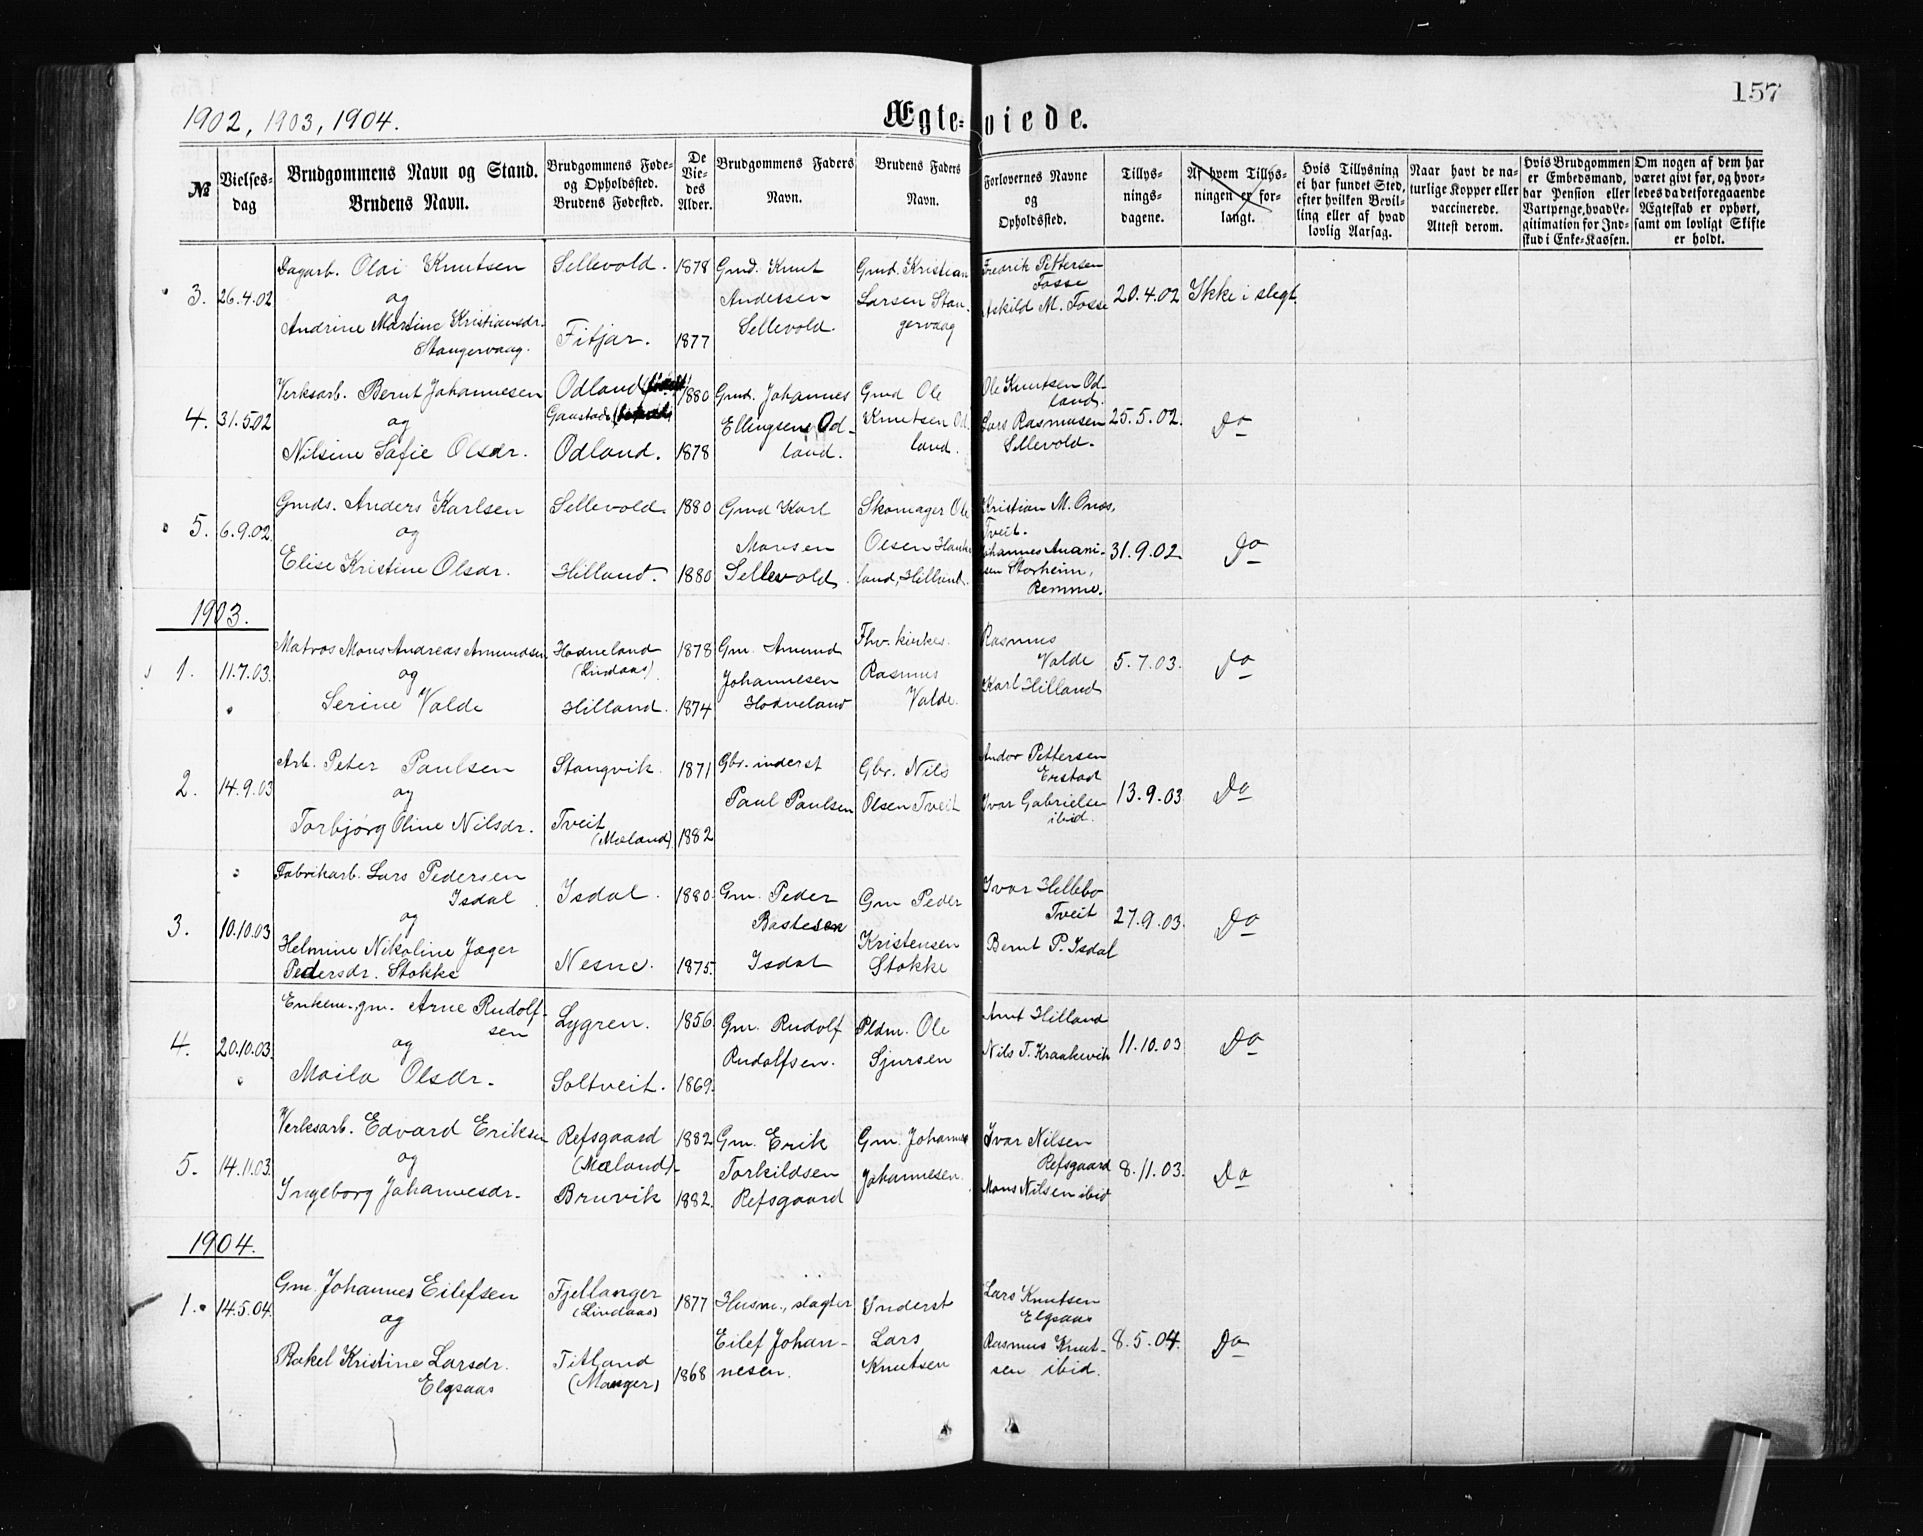 157
1902, 1903, 1904.
Ægteviede.
№
Vielsesdag
Brudgommens Navn og Stand.
Brudens Navn.
Brudgommens Fødeog Opholdssted.
Brudens Fødested.
De Viedes Alder.
Brudgommens Faders Navn.
Brudens Faders Navn.
Forlovernes Navne og Opholdssted.
Tillysningsdagene.
Af hvem Tillysningen er forlangt.
Hvis Tillysning ei har fundet Sted, efter hvilken Bevilling eller af hvad lovlig Aarsag.
Naar havt de naturlige Kopper eller vaccinerede. Attest derom.
Hvis Brudgommen er Embedsmand, har Pension eller Vartpenge, hvad Legitimation for Indskud i Enke-Kassen.
Om nogen af dem har været givt før, og hvorledes da det foregaaende Ægteskab er ophørt, samt om lovligt Skifte er holdt.
3. 26.4.02
Dagarb. Oldi Knutsen
og
Andrine Martine Kristiansdr.
Stangervaag.
Sellevold.
Fitjar.
1878
1877
Gmd. Knut
Andersen
Sellevold.
Gmd. Kristian
Larsen Stan-
gervaag
Fredrik Pettersen
Fosse
Askild M. Fosse
20.4.02
Ikke i slegt
4. 31.5.02
Verksarb. Bernt Johannesen
og
Nilsine Sofie Olsdr.
Odland
Gaustad
Odland.
1880
1878
Gmd. Johannes
Ellingsen Od-
land.
Gmd Ole
Knutsen Od
land.
Ole Knutsen Od-
land.
Lars Rasmusen
Sellevold.
25.5.02.
Do
5. 6.9.02.
Gmds. Anders Karlsen
og
Elise Kristine Olsdr.
Sellevold.
Hilland.
1880
1880
Gmd Karl
Monsen
Sellevold.
Skomager Ole
Olsen
land, Hilland.
Kristian M. Onæs,
Tveit.
Johannes Anani-
sen Storheim,
Remme.
31.9.02.
Do
1903.
1. 11.7.03.
Matros Mons Andreas Amundsen
og
Serine Valde
Hodneland
(Lindaas)
Hilland.
1878
1874
Gm. Amund
Johannesen
Hodneland
Fhv. kirkes.
Rasmus
Valde.
Rasmus
Valde
Karl Hilland
5.7.03.
Do
2. 14.9.03
Arb. Peter Paulsen
og
Torbjørg Oline Nilsdr.
Stangvik.
Tveit
(Mæland).
1871
1882
Gbr. inderst
Paul Paulsen
Gbr. Nils
Olsen Tveit
Andor Pettersen
Erstad
Ivar Gabrielse
ibid.
13.9.03.
Do
3. 10.10.03
Fabrikarb. Lars Pedersen
Isdal
og
Helmine Nikoline Jæger
Pedersdr. Stokke
Isdal.
Nesne.
1880.
1875.
Gm. Peder
Bastesen
Isdal
Gm Peder
Kristensen
Stokke
Ivar Hellebø
Tveit
Bernt P. Isdal
27.9.03.
Do
4. 20.10.03.
Enkem. gm. Arne Rudolf-
sen
og
Maila Olsdr.
Lygren.
Soltveit.
1856.
1869.
Gm. Rudolf
Rudolfsen.
Pldm. Ole
Sjursen
Amt Hilland
Nils T. Kraakevik
11.10.03
Do
5. 14.11.03.
Verksarb. Edvard Eriksen
og
Ingeborg Johannesdr.
Refsgaard
(Mæland).
Bruvik
1882
1882.
Gm. Erik
Torkildsen
Refsgaard
Gm. Johannes
Johannesen.
Ivar Nilsen
Refsgaard
Mons Nilsen ibid
8.11.03.
Do
1904.
1. 14.5.04.
Gm. Johannes Eilefsen
og
Rakel Kristine Larsdr.
Elgsaas
Fjellanger
(Lindaas)
Titland
(Manger)
1877
1868
Husm., slagter
Eilef Johan-
nesen.
Inderst
Lars
Knutsen
Lars Knutsen
Elgsaas
Rasmus Knut-
sen ibid.
8.5.04.
Do